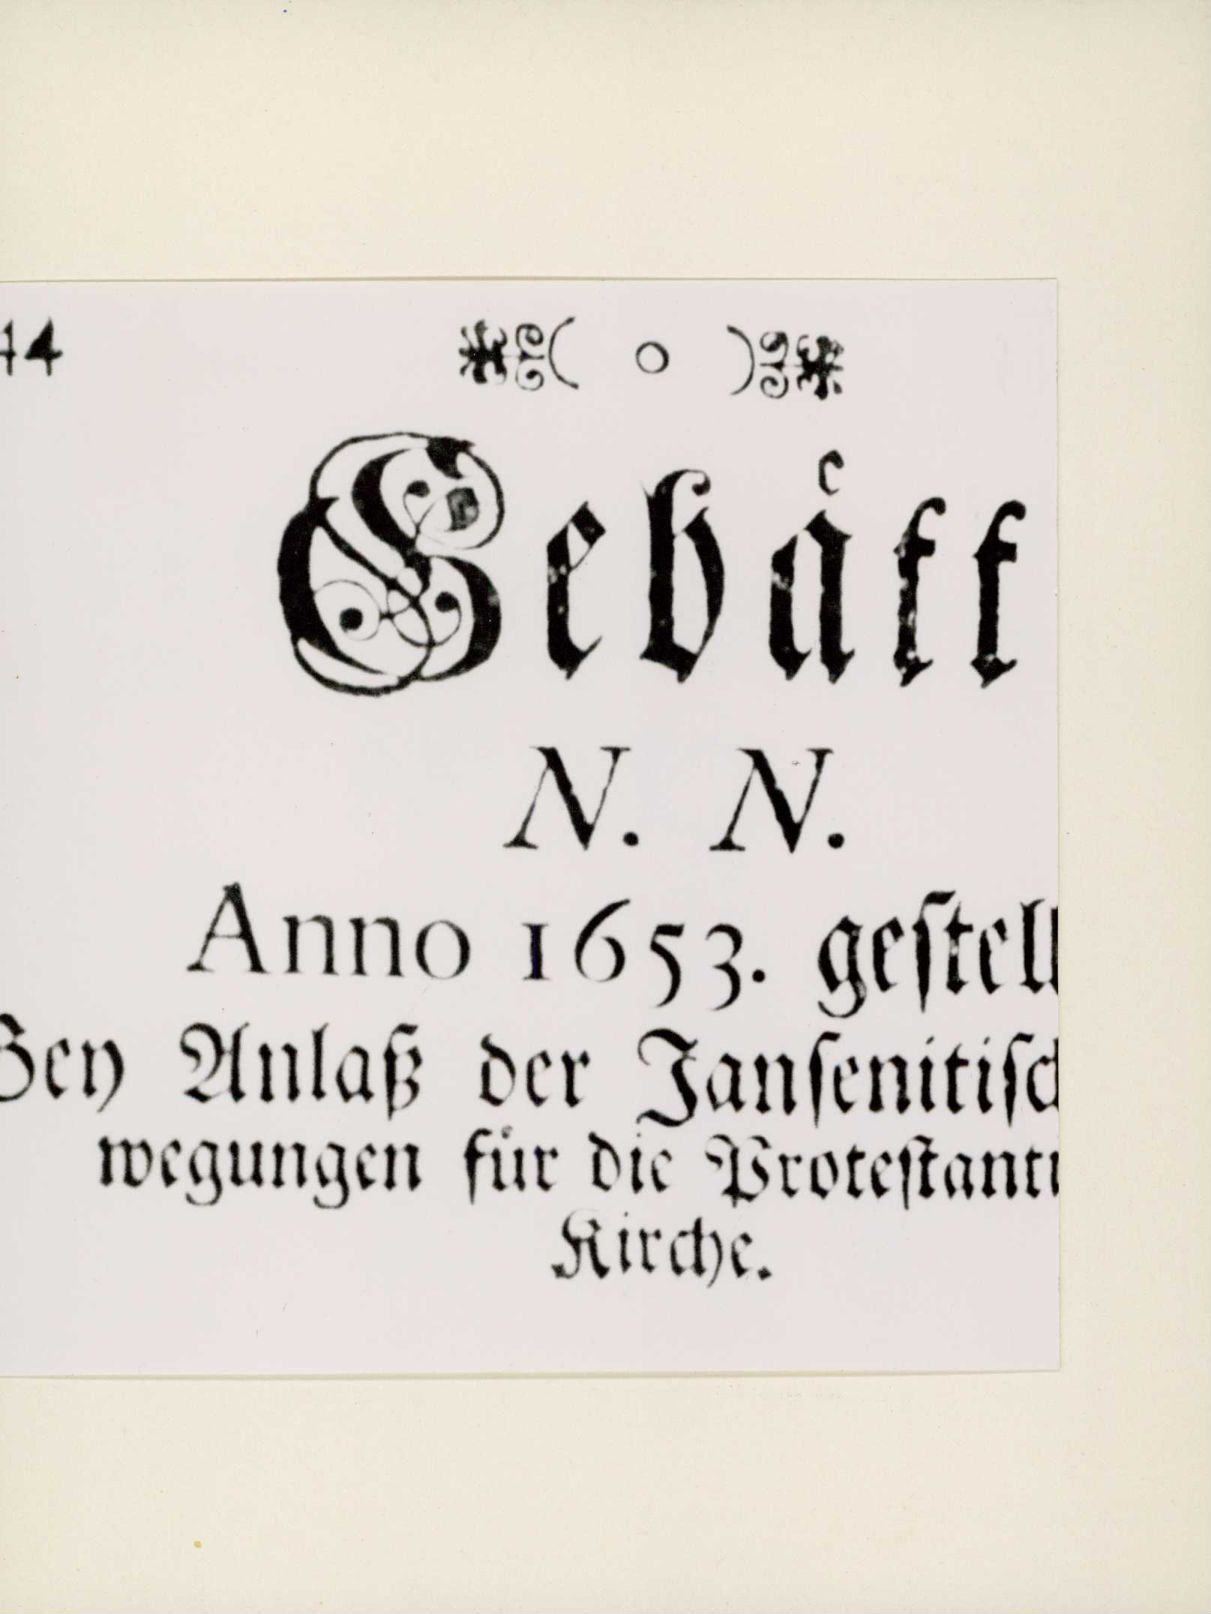 44 ( o )
Gebått
N. N.
Anno 1653. geſtell
Bey Anlaß der Janſenitiſch
wegungen für die Proteſtanti
Kirche.